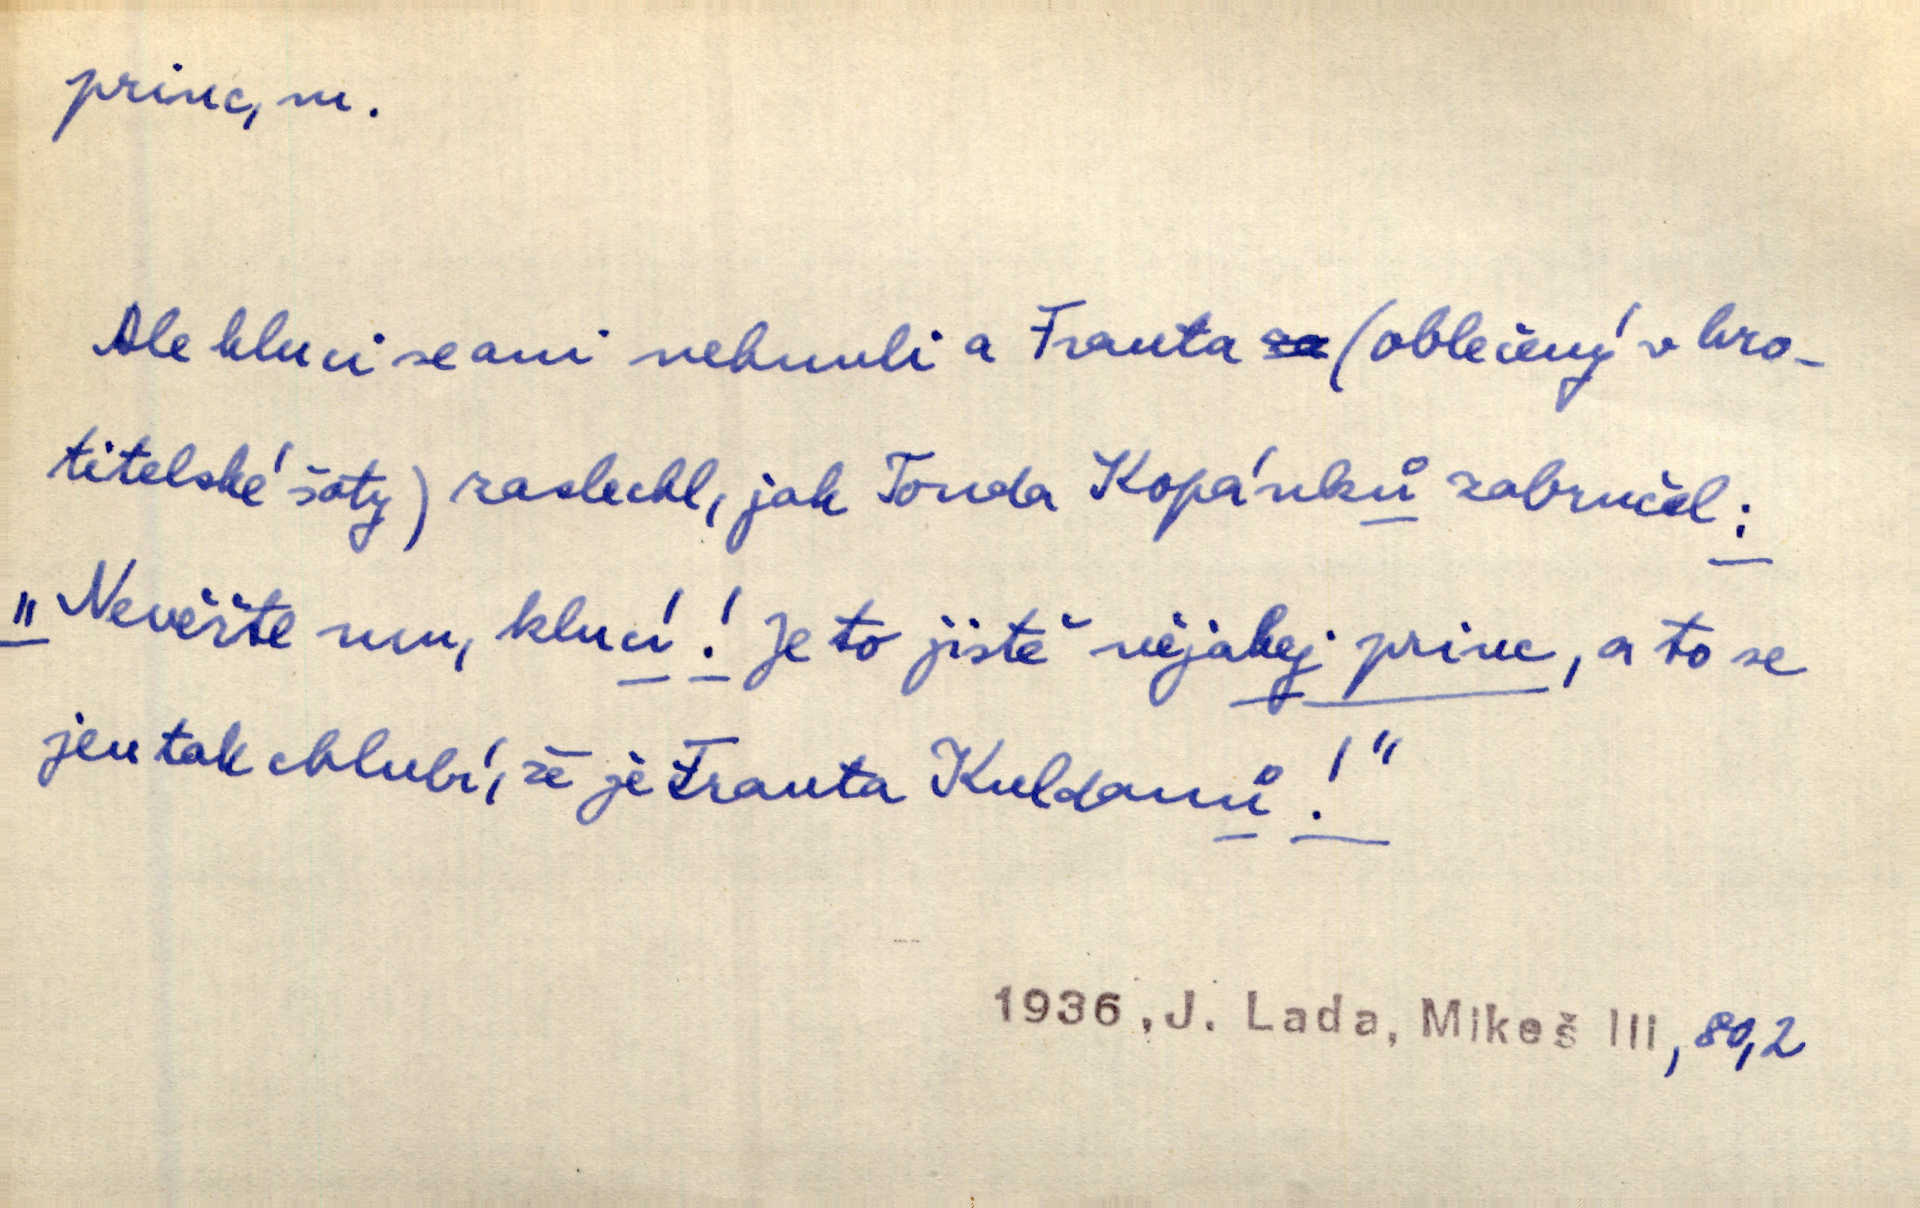 princ, m.
Ale kluci se ani nehnuli a Franta za (oblečený v kro-
titelské šaty) zaslechl, jak Tonda Kopánků zabručel:
"Nevěřte mu, klucí! Je to jistě nějakej princ, a to se
jen tak chlubí, že je Franta Kuldanů!"
1936, J. Lada, Mikeš III, 80,2